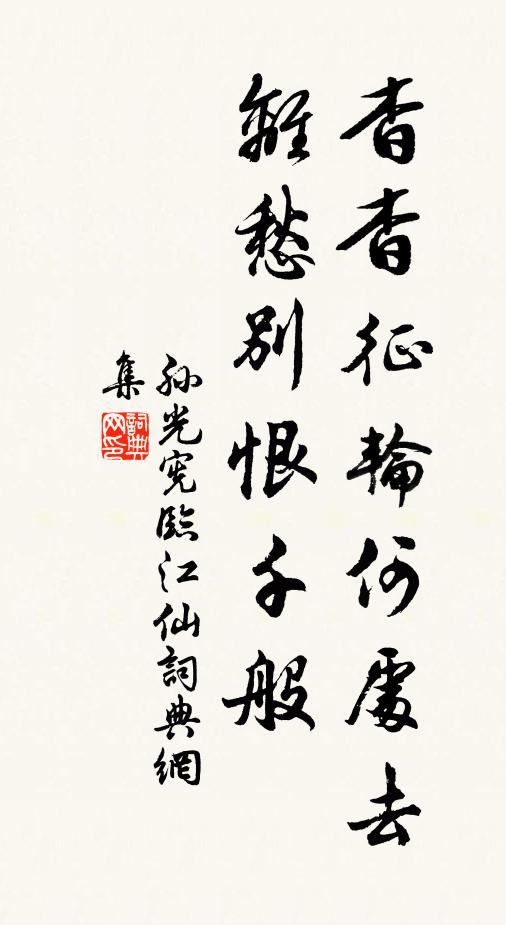 杳杳征輪何處去
離愁別恨千般
孫光憲臨江仙詞典網
集
詞典網印